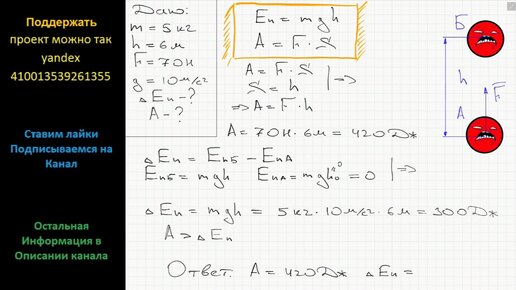 Поддержать
проект можно так
yandex
410013539261355
Ставим лайки
Подписываемся на
Канал
Остальная
Информация в
Описании канала
Дано:
m = 5 кг
h = 6 м
F = 70 Н
g = 10 м/с²
ΔEп - ?
A - ?
Eп = mgh
A = F · S
A = F · S
S = h
|=>
=> A = F · h
A = 70 Н · 6 м = 420 Дж
ΔEп = EпБ - EпА
EпБ = mgh EпА = mgh₀⁰ = 0 |=>
ΔEп = mgh = 5 кг · 10 м/с² · 6 м = 300 Дж
A > ΔEп
Ответ. A = 420 Дж ΔEп =
Б
h
F
А